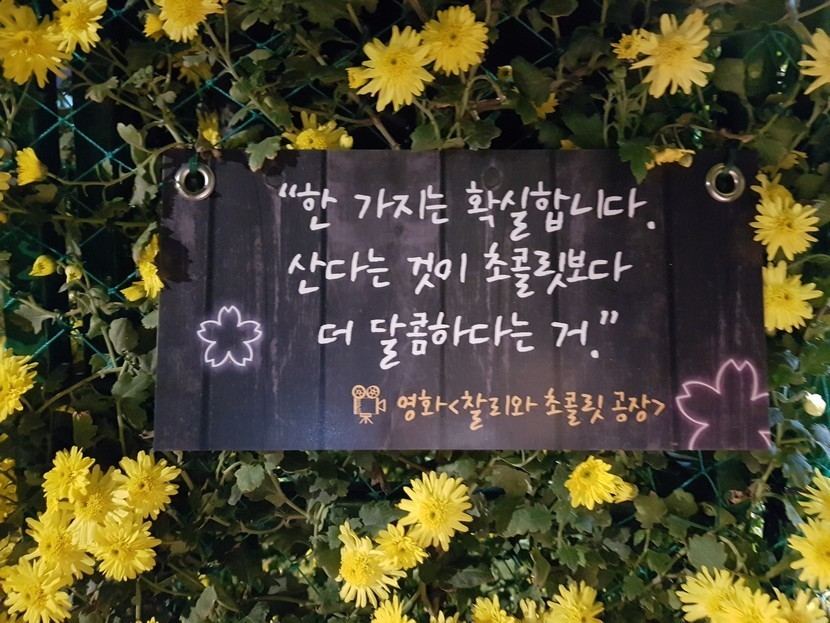 “한 가지는 확실합니다.
산다는 것이 초콜릿보다
더 달콤하다는 거.”
영화<찰리와 초콜릿 공장>